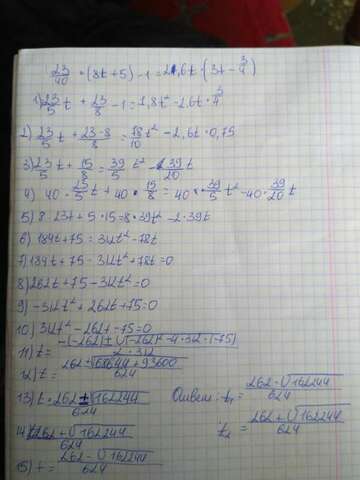 23/40 · (8t + 5) - 1 = 2,6t · (3t - 3/4)
1) 23/5 t + 23/8 - 1 = 7,8t² - 2,6t · 3/4
2) 23/5 t + 23-8/8 = 78/10 t² - 2,6t · 0,75
3) 23/5 t + 15/8 = 39/5 t² - 39/20 t
4) 40 · 23/5 t + 40 · 15/8 = 40 · 39/5 t² - 40 · 39/20 t
5) 8 · 23t + 5 · 15 = 8 · 39t² - 2 · 39t
6) 184t + 75 = 312t² - 78t
7) 184t + 75 - 312t² + 78t = 0
8) 262t + 75 - 312t² = 0
9) -312t² + 262t + 75 = 0
10) 312t² - 262t - 75 = 0
11) t = -(-262) ± √(-262)² - 4 · 312 · (-75) / 2 · 312
12) t = 262 ± √68644 + 93600 / 624
13) t = 262 ± √162244 / 624 Ответ: t₁ = 262 - √162244 / 624
14) t = 262 + √162244 / 624 t₂ = 262 + √162244 / 624
15) t = 262 - √162244 / 624